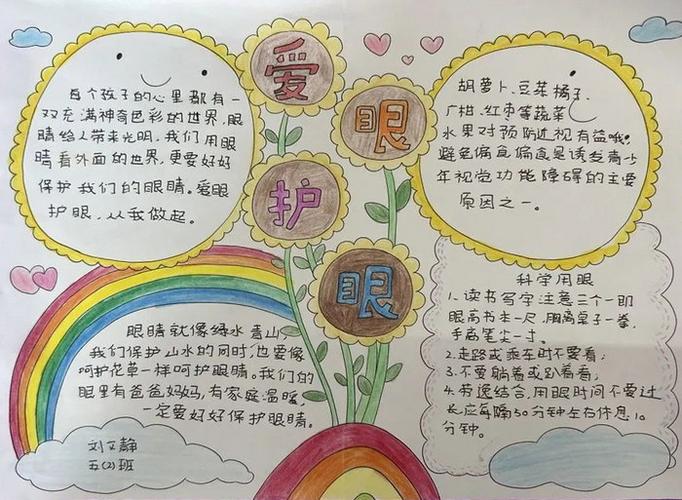 爱
眼
护
眼
每个孩子的心里都有一
双充满神奇色彩的世界,眼
睛给人带来光明,我们用眼
睛看外面的世界,更要好好
保护我们的眼睛。爱眼
护眼,从我做起。
胡萝卜、豆芽、橘子、
广柑、红枣等蔬菜
水果对预防近视有益哦。
避免偏食,偏食是诱发青少
年视觉功能障碍的主要
原因之一。
眼睛就像绿水青山,
我们保护山水的同时,也要像
呵护花草一样呵护眼睛。我们的
眼里有爸爸妈妈,有家庭温暖,
一定要好好保护眼睛。
科学用眼
1、读书写字注意三个一即
眼离书本一尺,胸离桌子一拳,
手离笔尖一寸。
2.走路或乘车时不要看;
3.不要躺着或趴着看;
4.劳逸结合,用眼时间不要过
长应每隔50分钟左右休息10
分钟。
刘文静
五(2)班